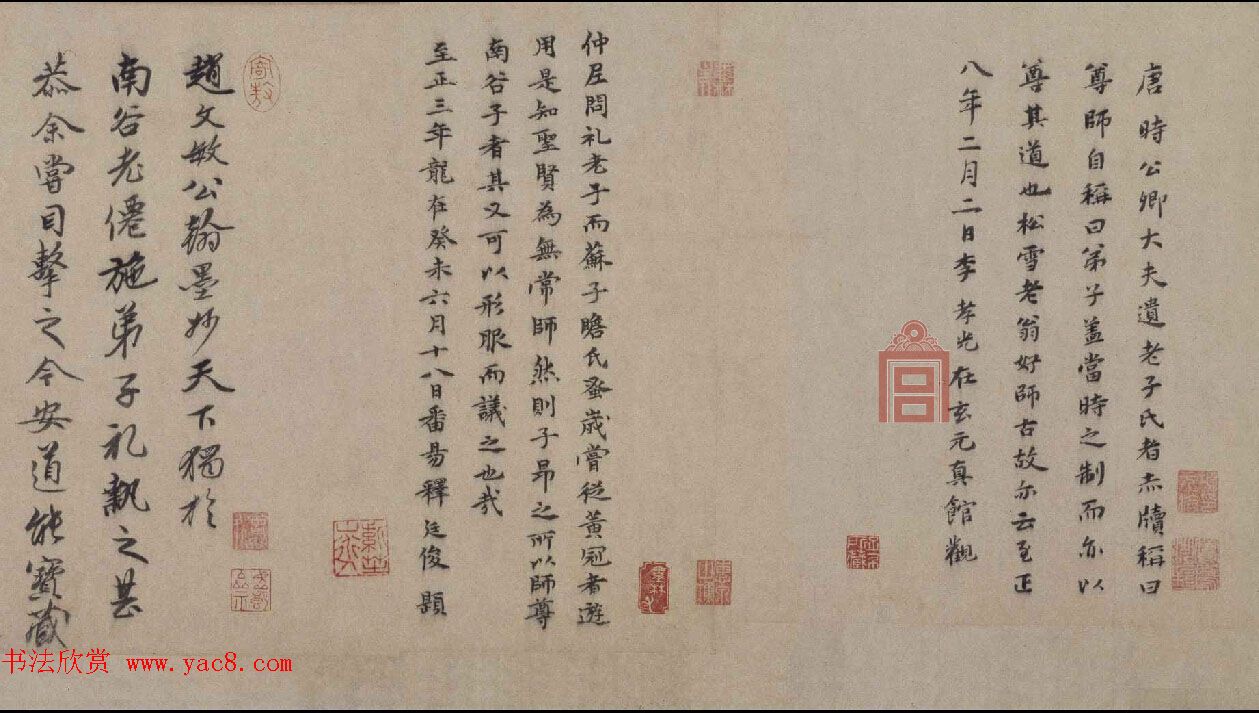 唐時公卿大夫遺老子氏者尺牘稱曰
尊師自稱曰弟子盖當時之制而亦以
尊其道也松雪老翁好師古故亦云至正
八年二月二日李孝光在玄元真館觀
仲尼問礼老子而蘇子瞻氏蚤歲嘗從黃冠者遊
用是知聖賢為無常師然則子昂之所以師尊
南谷子者其又可以形服而議之也哉
至正三年龍在癸未六月十八日番昜釋廷俊題
趙文敏公翰墨妙天下獨於
南谷老僊施弟子礼執之甚
恭余嘗目擊之今安道能寶藏
书法欣赏 www.yac8.com